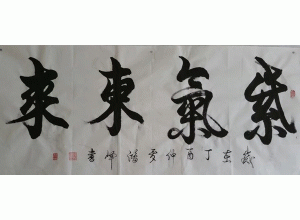 紫氣東來
歲在丁酉仲夏
書